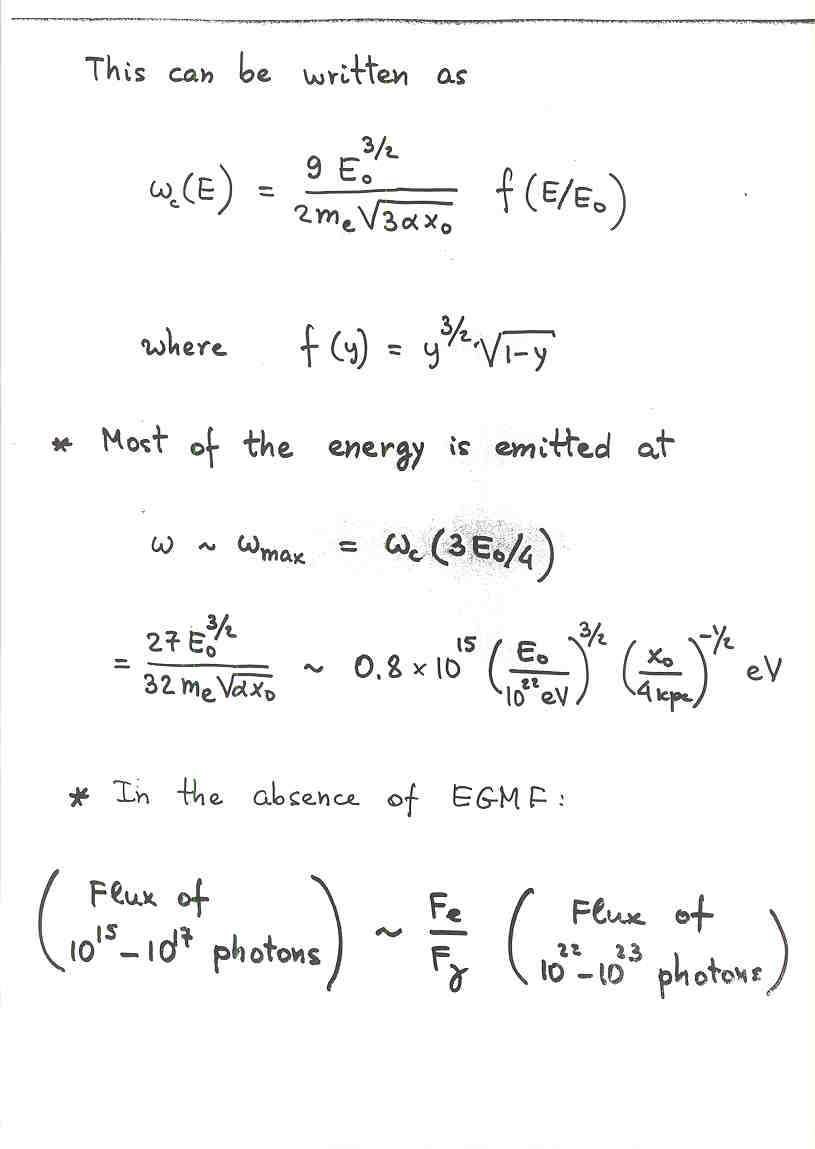 This can be written as
ω_c(E) = 9 E_0^{3/2} / 2m_e√(3αx_0) f(E/E_0)
where f(y) = y^{3/2}·√(1-y)
* Most of the energy is emitted at
ω ~ ω_max = ω_c(3E_0/4)
= 27 E_0^{3/2} / 32 m_e√(αx_0) ~ 0.8 × 10^15 (E_0 / 10^22 eV)^{3/2} (x_0 / 4 kpc)^{-1/2} eV
* In the absence of EGMF:
(Flux of 10^15 – 10^17 photons) ~ F_e / F_γ (Flux of 10^22 – 10^23 photons)